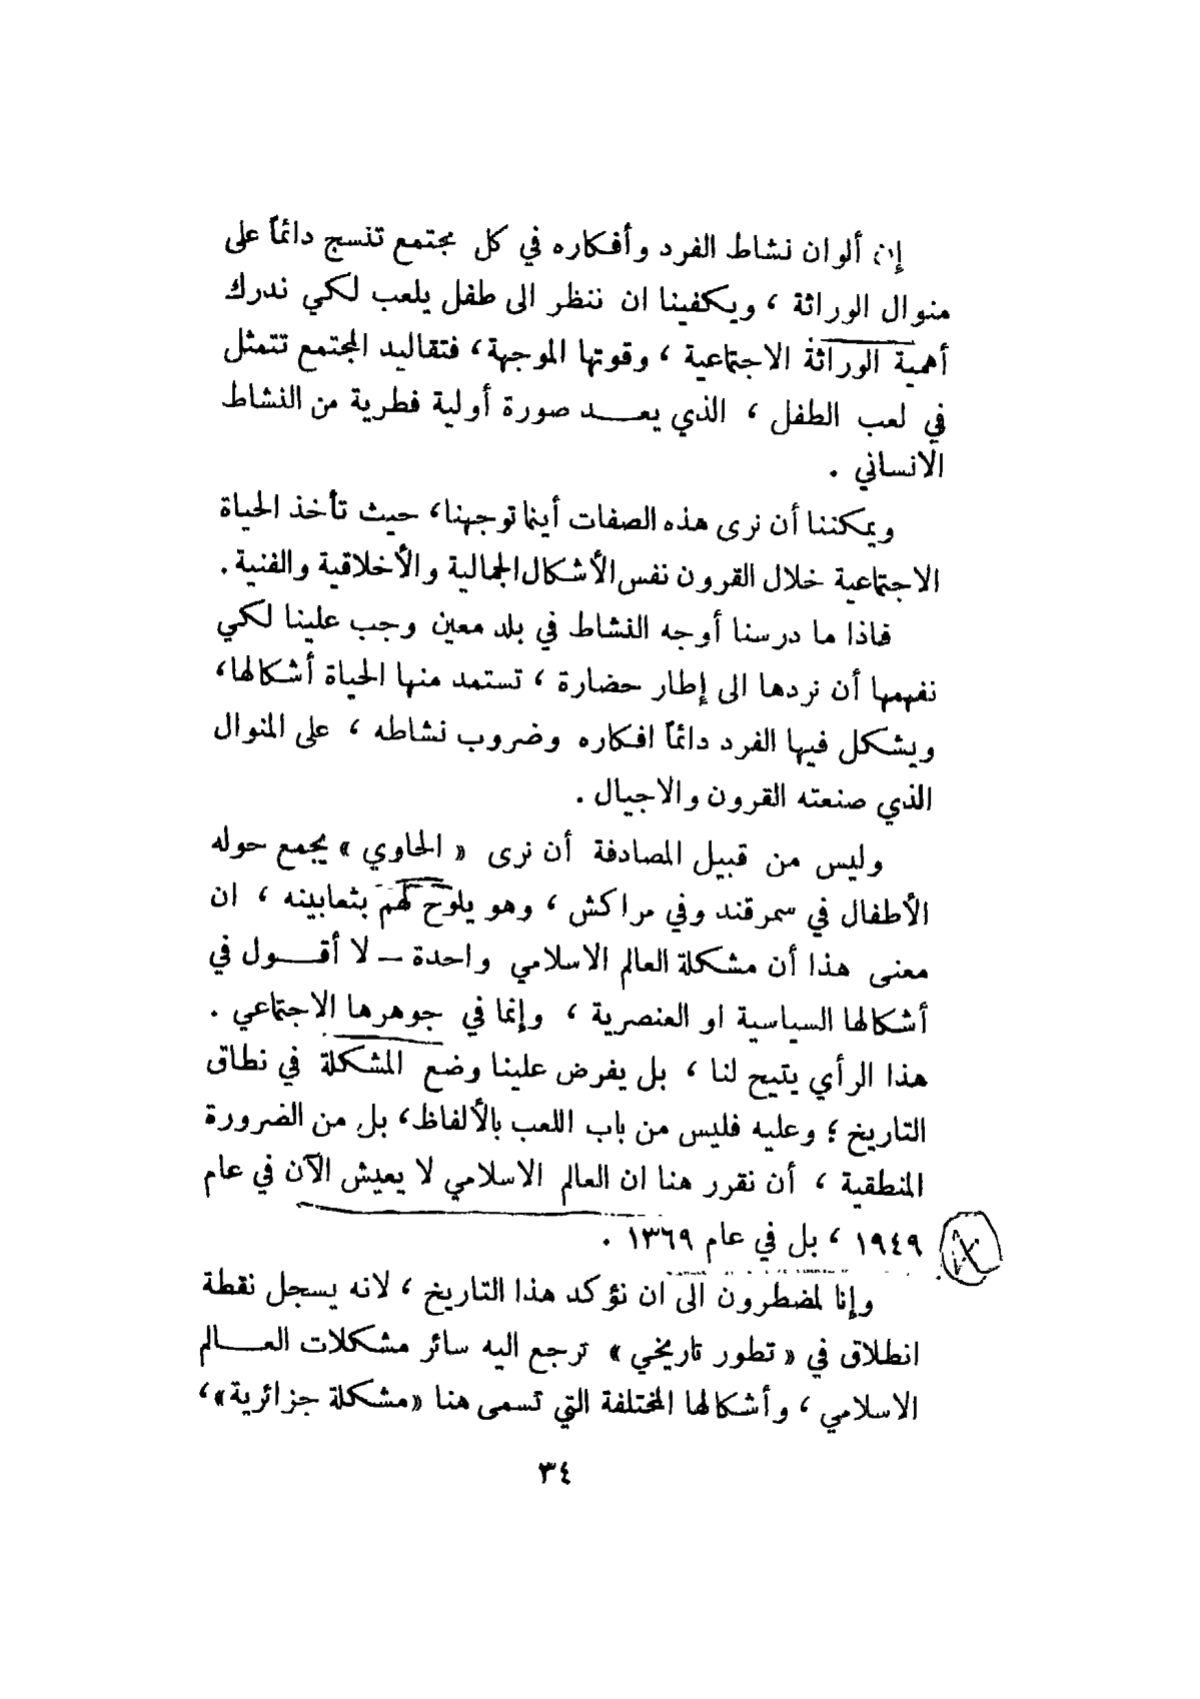 إن ألوان نشاط الفرد وأفكاره في كل مجتمع تنسج دائماً على
منوال الوراثة ، ويكفينا ان ننظر الى طفل يلعب لكي ندرك
أهمية الوراثة الاجتماعية ، وقوتها الموجهة، فتقاليد المجتمع تتمثل
في لعب الطفل ، الذي يعد صورة أولية فطرية من النشاط
الانساني .
ويمكننا أن نرى هذه الصفات أينما توجهنا، حيث تأخذ الحياة
الاجتماعية خلال القرون نفس الأشكال الجمالية والأخلاقية والفنية .
فاذا ما درسنا أوجه النشاط في بلد معين وجب علينا لكي
نفهمها أن نردها الى إطار حضارة ، تستمد منها الحياة أشكالها،
ويشكل فيها الفرد دائماً افكاره وضروب نشاطه ، على المنوال
الذي صنعته القرون والاجيال .
وليس من قبيل المصادفة أن نرى « الحاوي » يجمع حوله
الأطفال في سمرقند وفي مراكش ، وهو يلوح لهم بثعابينه ، ان
معنى هذا أن مشكلة العالم الاسلامي واحدة – لا أقول في
أشكالها السياسية او العنصرية ، وإنما في جوهرها الاجتماعي .
هذا الرأي يتيح لنا ، بل يفرض علينا وضع المشكلة في نطاق
التاريخ ؛ وعليه فليس من باب اللعب بالألفاظ، بل من الضرورة
المنطقية ، أن نقرر هنا ان العالم الاسلامي لا يعيش الآن في عام
١٩٤٩ ، بل في عام ١٣٦٩ .
وإنا لمضطرون الى ان نؤكد هذا التاريخ ، لانه يسجل نقطة
انطلاق في « تطور تاريخي » ترجع اليه سائر مشكلات العالم
الاسلامي ، وأشكالها المختلفة التي تسمى هنا «مشكلة جزائرية»،
٣٤